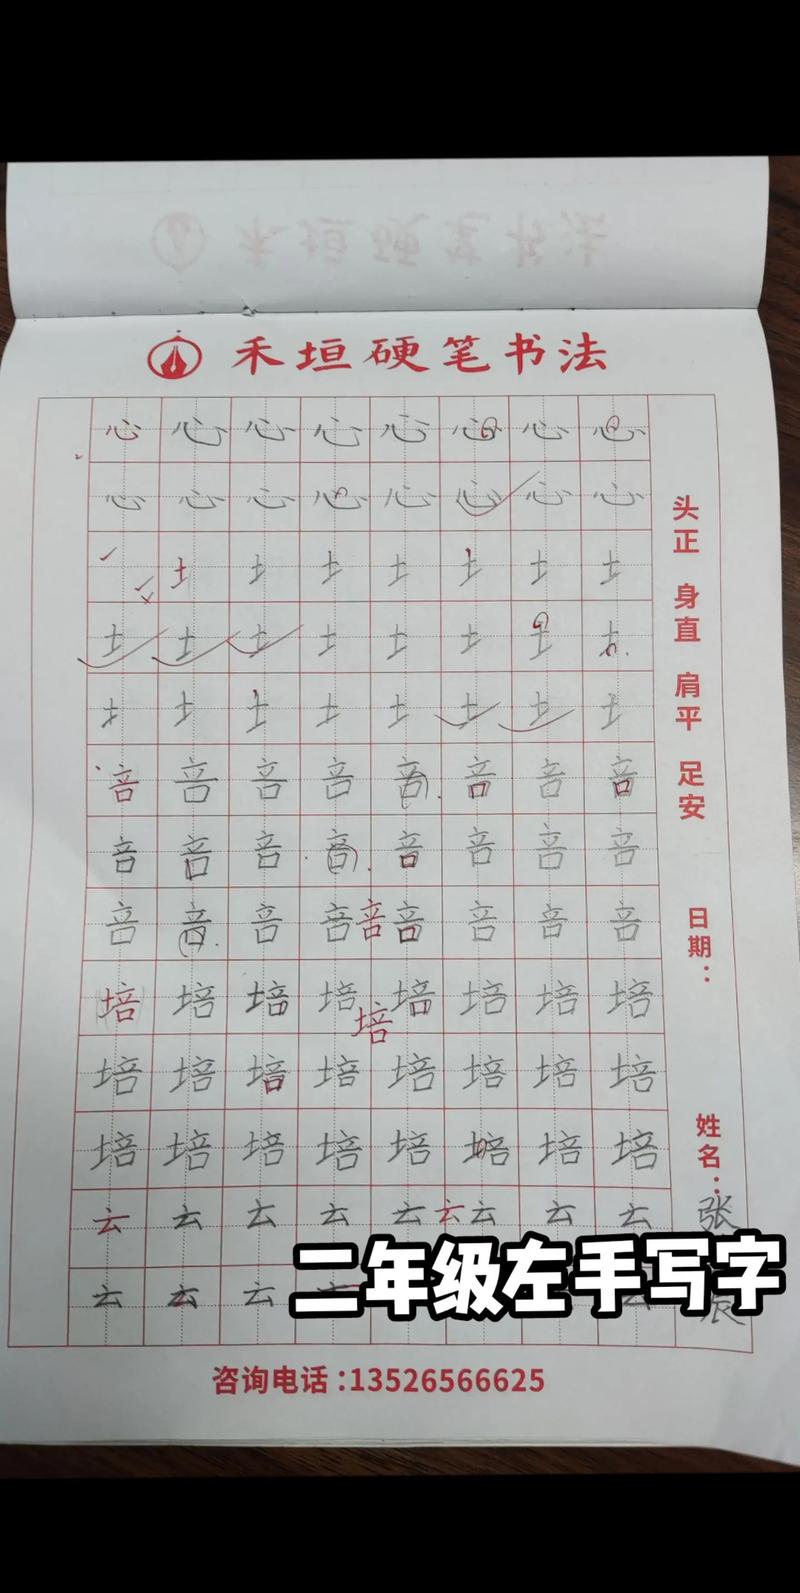 禾垣硬笔书法
心 心 心 心 心 心 心 心
心 心 心 心 心 心 心 心
土 土 土 土 土 土 土
土 土 土 土 土 土 土 土
土 土 土 土 土 土 土 土
咅 咅 咅 咅 咅 咅 咅 咅
咅 咅 咅 咅 咅 咅 咅 咅
咅 咅 咅 咅 咅 咅 咅 咅 咅
培 培 培 培 培 培 培 培
培
培 培 培 培 培 培 培 培
培 培 培 培 培 培 培 培
云 云 云 云 云 云 云 云 云
云 云 云
头正 身直 肩平 足安
日期：
姓名：张
二年级左手写字
咨询电话:13526566625